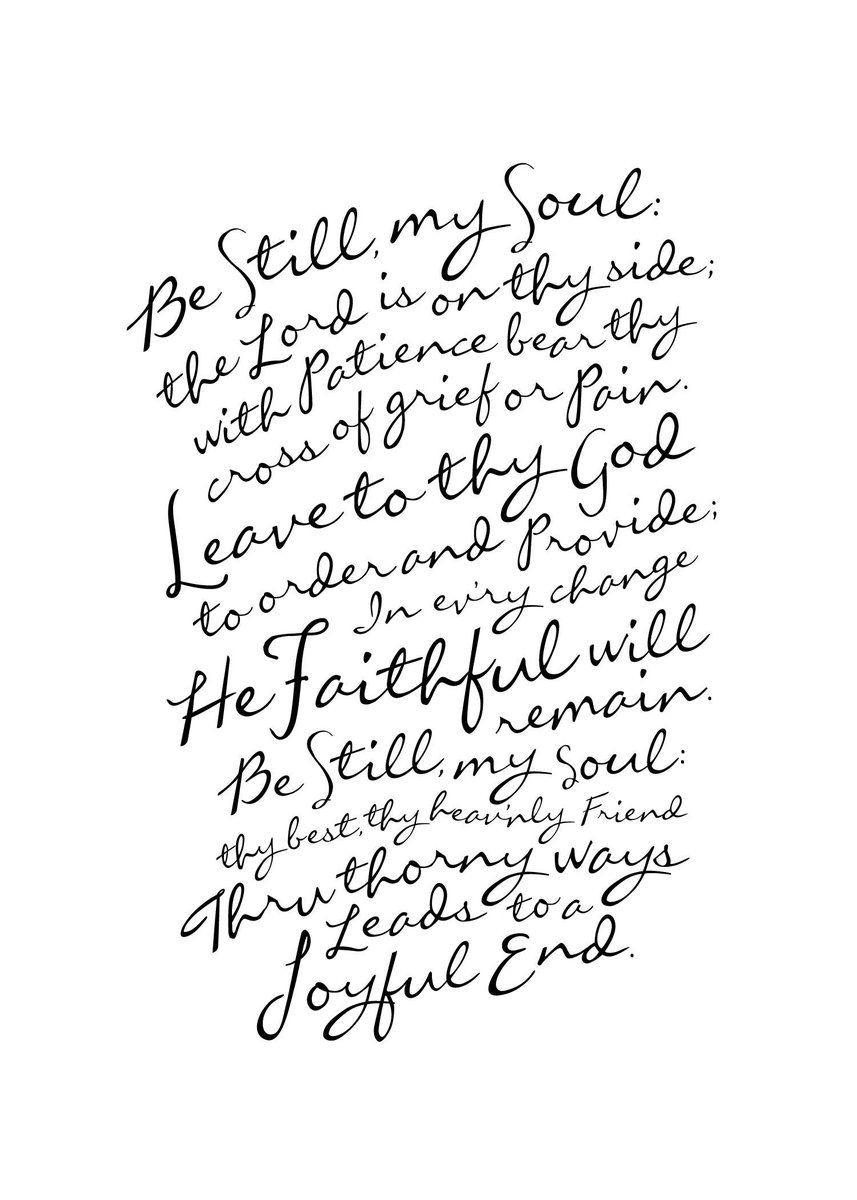 Be Still, my Soul:
the Lord is on thy side;
with Patience bear thy
cross of grief or Pain.
Leave to thy God
to order and Provide;
In ev'ry change
He Faithful will
remain.
Be Still, my Soul:
thy best, thy heav'nly Friend
Thru thorny ways
Leads to a
Joyful End.